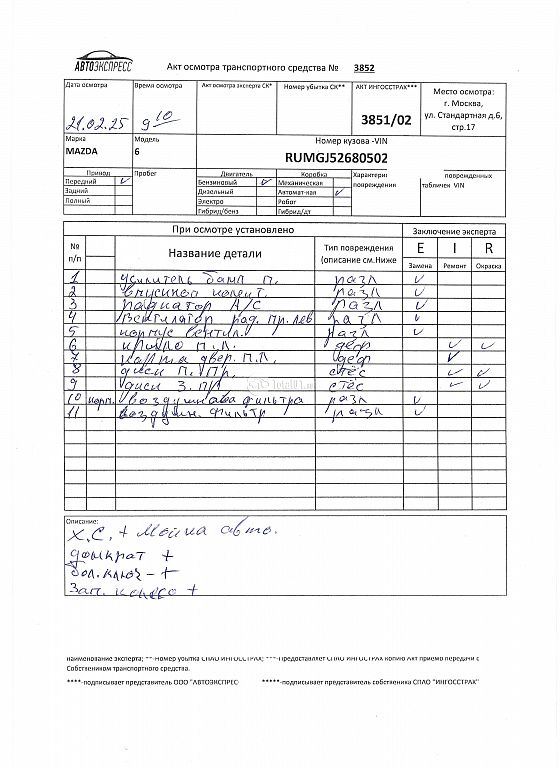 АВТОЭКСПРЕСС
Акт осмотра транспортного средства № 3852
Дата осмотра Время осмотра Акт осмотра эксперта СК* Номер убытка СК** АКТ ИНГОССТРАХ*** Место осмотра:
г. Москва,
ул. Стандартная д.6,
стр.17
21.02.25 9 10 3851/02
Марка Модель Номер кузова -VIN
MAZDA 6 RUMGJ52680502
Привод Пробег Двигатель Коробка Характери поврежденных
Передний ✓ Бензиновый ✓ Механическая повреждения табличек VIN
Задний Дизельный Автомат-кая ✓
Полный Электро Робот
Гибрид/бенз Гибрид/дт
При осмотре установлено Заключение эксперта
№ п/п Название детали Тип повреждения (описание см.Ниже E I R
Замена Ремонт Окраска
1 усилитель бамп П. разл ✓
2 впускной колект. разл ✓
3 радиатор А/С разл ✓
4 вентилятор рад. пр. лев разл ✓
5 корпус вентил. разл ✓
6 крыло п.л. деф ✓ ✓
7 карта двер. П.Л. деф ✓
8 диск П. Пр. стёс ✓ ✓
9 диск З. ПР стёс ✓ ✓
10 корп. воздушного фильтра разл ✓
11 воздушн. фильтр разл ✓
Описание:
Х.С. + Мойка авто.
Домкрат +
бол. ключ - +
Зап. колесо +
наименование эксперта; **-Номер убытка СПАО ИНГОССТРАХ; ***-Предоставляет СПАО ИНГОССТРАХ копию Акт приемо передачи с
Собственником транспортного средства.
****-подписывает представитель ООО "АВТОЭКСПРЕС *****-подписывает представитель собственика СПАО "ИНГОССТРАХ"